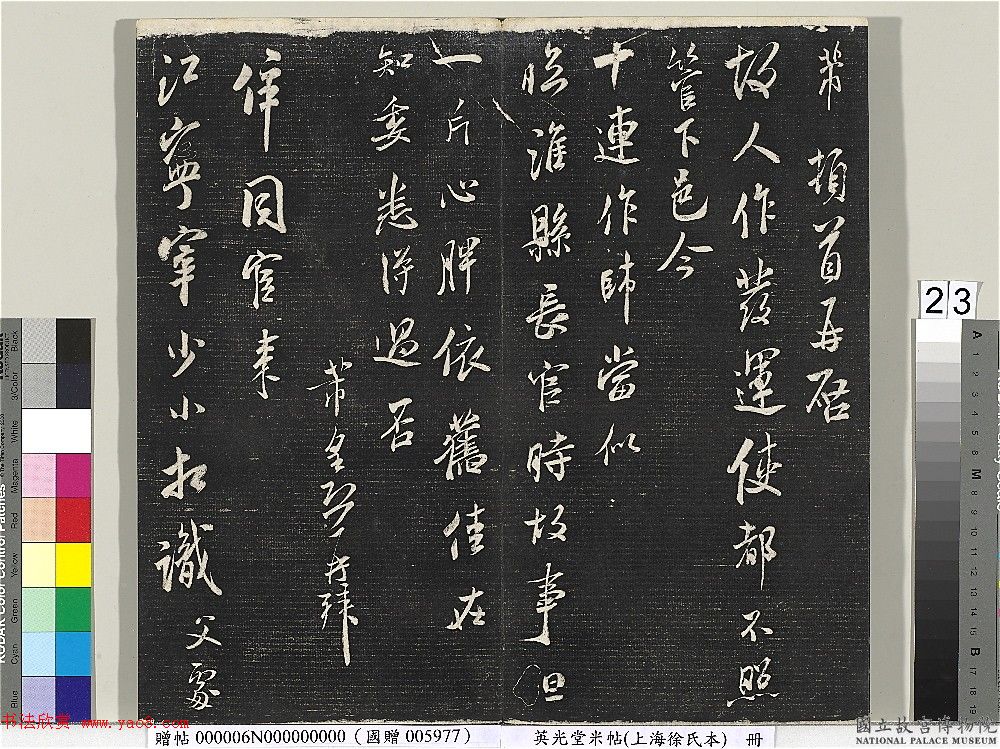 芾 頓首再啓
故人作發運使都不照
管下邑令
十連作帥當似
臨淮縣長官時故事但
一片心胖依舊佳在
知委悉得過否
芾皇恐再拜
倅同官來
江寧宰少小相識父處
23
贈帖 000006N000000000 (國贈 005977)
英光堂米帖(上海徐氏本) 冊
書法欣赏 www.yac8.com
國立故宮博物院
NATIONAL PALACE MUSEUM
KODAK Color Control Patches
Blue
Cyan
Green
Yellow
Red
Magenta
White
3/Color
Black
A
1
2
3
4
5
6
M
8
9
10
11
12
13
14
15
B
17
18
19